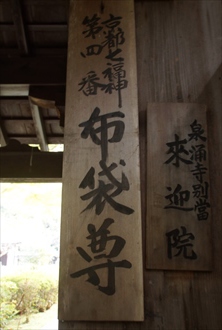 京都七福神
第四番
布袋尊
泉涌寺別當
來迎院